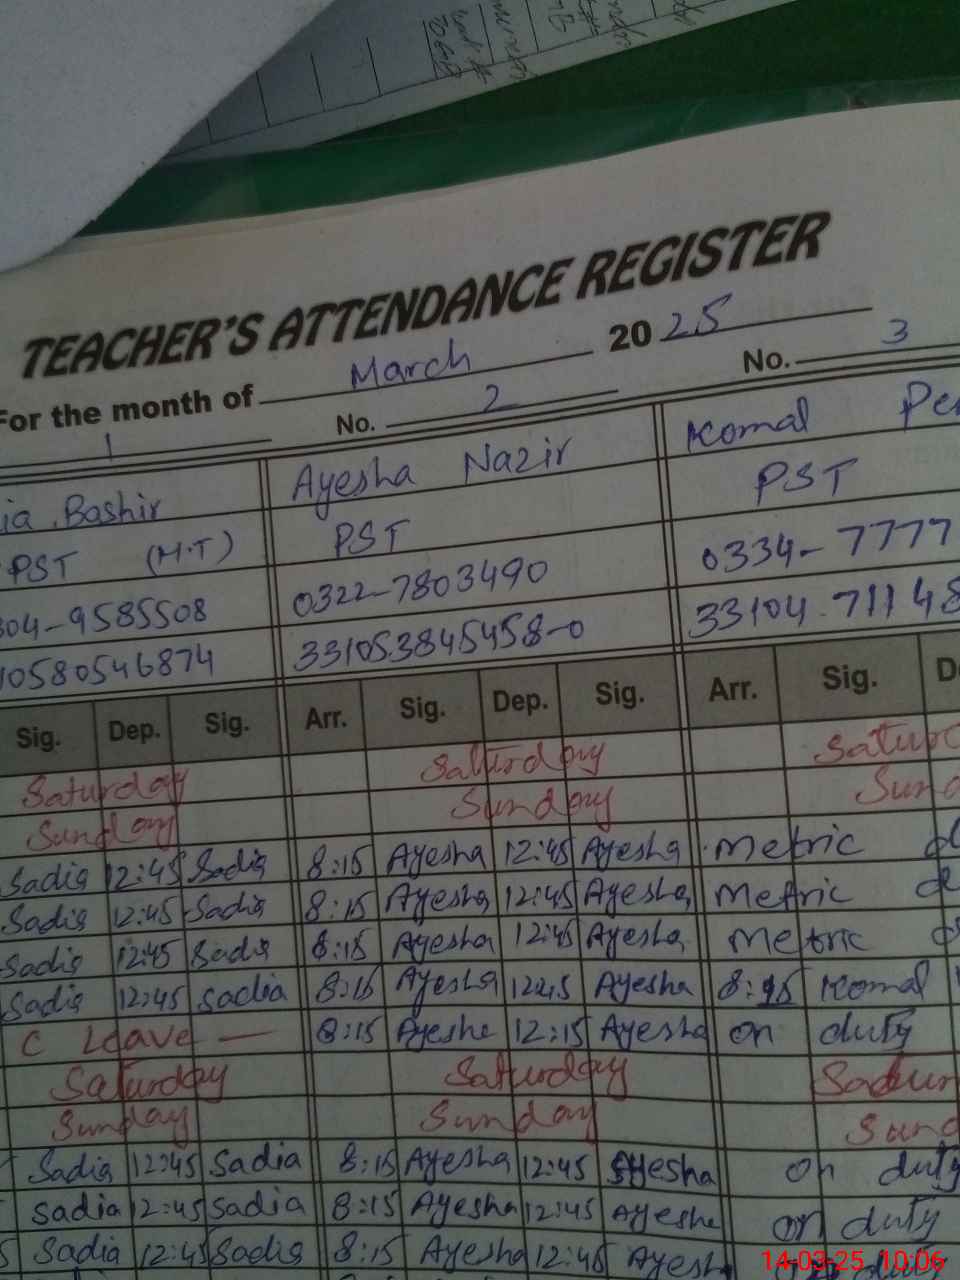 TEACHER'S ATTENDANCE REGISTER
For the month of March 2025
1 No. 2 No. 3
ia Bashir Ayesha Nazir Komal Pe
PST (H.T) PST PST
304-9585508 0322-7803490 0334-7777
10580546874 331053845458-0 33104-71148
Sig. Dep. Sig. Arr. Sig. Dep. Sig. Arr. Sig. D
Saturday Saturday Satur
Sunday Sunday Sund
Sadia 12:45 Sadia 8:15 Ayesha 12:45 Ayesha Metric d
Sadia 12:45 Sadia 8:15 Ayesha 12:45 Ayesha Metric de
Sadia 12:45 Sadia 8:15 Ayesha 12:45 Ayesha Metric
Sadia 12:45 Sadia 8:15 Ayesha 12:45 Ayesha 8:15 Komal
C Leave — 8:15 Ayesha 12:15 Ayesha on duty
Saturday Saturday Satur
Sunday Sunday Sund
Sadia 12:45 Sadia 8:15 Ayesha 12:45 Ayesha on duty
Sadia 12:45 Sadia 8:15 Ayesha 12:45 Ayesha on duty
Sadia 12:45 Sadia 8:15 Ayesha 12:45 Ayesha on duty
14-03-25 10:06